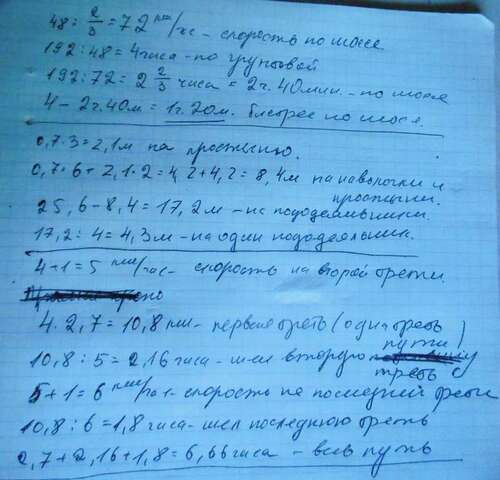 48 : 2/3 = 72 км/час - скорость по шоссе
192 : 48 = 4 часа - по грунтовой
192 : 72 = 2 2/3 часа = 2ч. 40мин. - по шоссе
4 - 2ч. 40м. = 1ч. 20м. быстрее по шоссе.
0,7 · 3 = 2,1м на простыню.
0,7 · 6 + 2,1 · 2 = 4,2 + 4,2 = 8,4м на наволочки и
простыни.
25,6 - 8,4 = 17,2м - на пододеяльники.
17,2 : 4 = 4,3м - на один пододеяльник.
4 + 1 = 5 км/час - скорость на второй трети.
4 · 2,7 = 10,8км - первая треть (одна треть
пути)
10,8 : 5 = 2,16 часа - шел вторую
треть
5 + 1 = 6 км/час - скорость на последней трети
10,8 : 6 = 1,8 часа - шел последнюю треть
2,7 + 2,16 + 1,8 = 6,66 часа - весь путь